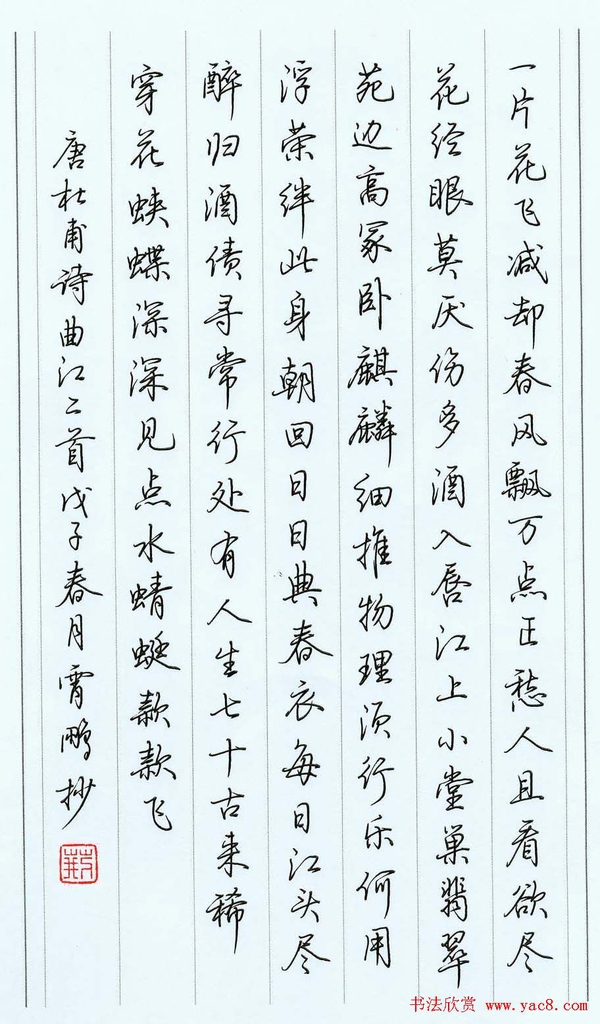 一片花飞减却春风飘万点正愁人且看欲尽
花经眼莫厌伤多酒入唇江上小堂巢翡翠
苑边高冢卧麒麟细推物理须行乐何用
浮荣绊此身朝回日日典春衣每日江头尽
醉归酒债寻常行处有人生七十古来稀
穿花蛱蝶深深见点水蜻蜓款款飞
唐杜甫诗曲江二首戊子春月霄鹏抄
书法欣赏 www.yac8.com